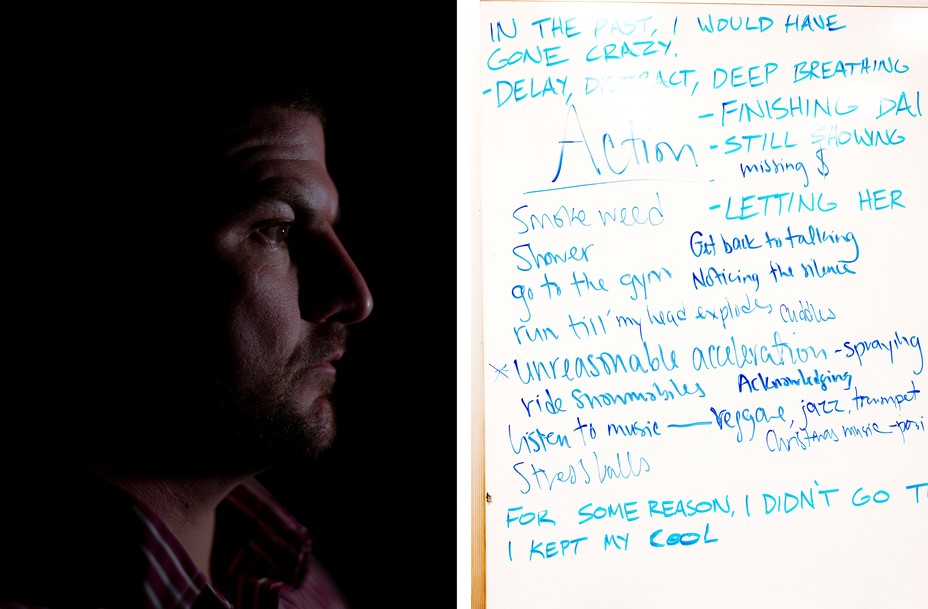 IN THE PAST, I WOULD HAVE
GONE CRAZY.
-DELAY, DISTRACT, DEEP BREATHING
Action
-FINISHING DAI
-STILL SHOWING
missing $
-LETTING HER
Smoke weed
Get back to talking
Shower
Noticing the silence
go to the gym
run till' my head explodes cuddles
*unreasonable acceleration -spraying
ride snowmobiles Acknowledging
listen to music — reggae, jazz, trumpet
Christmas music -posi
Stress balls
FOR SOME REASON, I DIDN'T GO T
I KEPT MY COOL